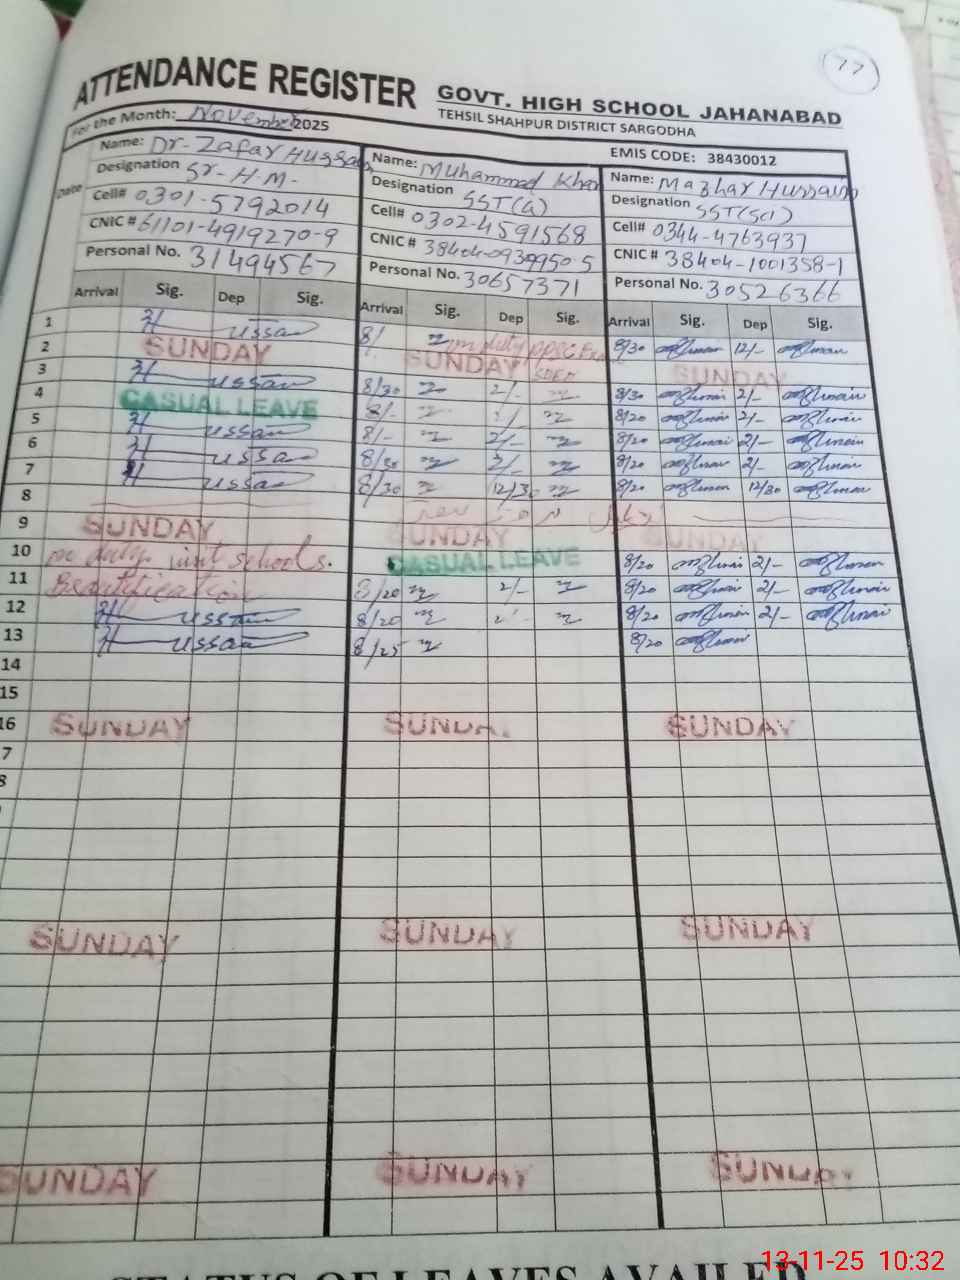 77
ATTENDANCE REGISTER GOVT. HIGH SCHOOL JAHANABAD
TEHSIL SHAHPUR DISTRICT SARGODHA
For the Month: November 2025
EMIS CODE: 38430012
Date
Name: Dr. Zafar Hussain
Designation Sr. H.M.
Cell# 0301-5792014
CNIC # 61101-4919270-9
Personal No. 31494567
Name: Muhammad Khan
Designation SST(G)
Cell# 0302-4591568
CNIC #
Personal No. 30657371
Name: Mazhar Hussain
Designation SST(Sci)
Cell# 0344-4763937
CNIC # 38404-1001358-1
Personal No. 30526366
Arrival Sig. Dep Sig. Arrival Sig. Dep Sig. Arrival Sig. Dep Sig.
1 Hussain 8/ on duty PPSC 8/30 12/-
2 SUNDAY SUNDAY SUNDAY
3 Hussain 8/30 2/- 8/30 2/-
4 CASUAL LEAVE 8/- 8/20 2/-
5 Hussain 8/- 2/- 8/20 2/-
6 Hussain 8/30 2/- 8/20 2/-
7 Hussain 8/30 12/30 8/20 12/30
8
9 SUNDAY SUNDAY SUNDAY
10 on duty visit schools. CASUAL LEAVE 8/20 2/-
11 Beautification 8/20 2/- 8/20 2/-
12 Hussain 8/20 8/20 2/-
13 Hussain 8/25 8/20
14
15
16 SUNDAY SUNDAY SUNDAY
7
8
SUNDAY SUNDAY SUNDAY
SUNDAY SUNDAY SUNDAY
STATUS OF LEAVES AVAILED
13-11-25 10:32